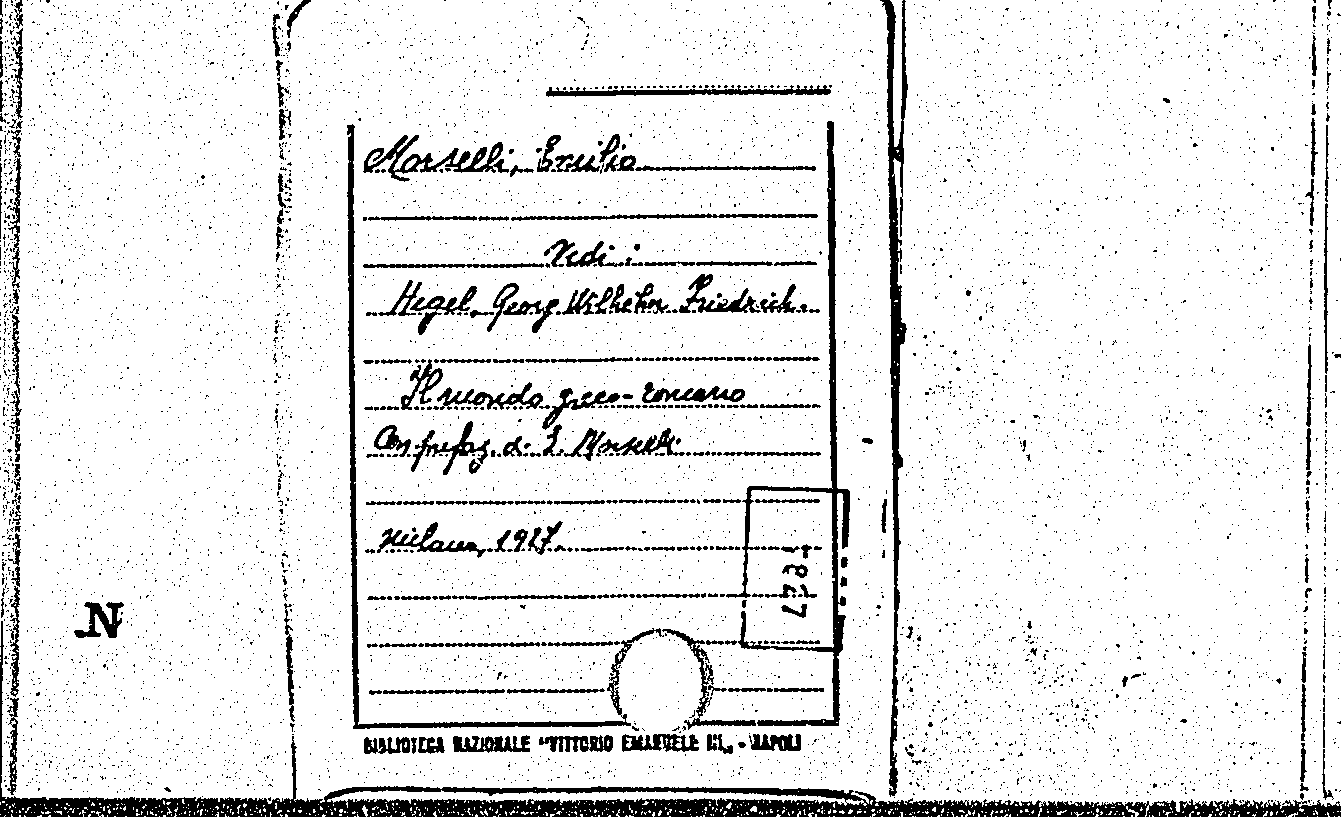 Morselli, Emilio
Vedi :
Hegel, Georg Wilhelm Friedrich.
Il mondo greco-romano
Con prefaz. di E. Morselli.
Milano, 1927.
1927
N
BIBLIOTECA NAZIONALE "VITTORIO EMANUELE III„ - NAPOLI